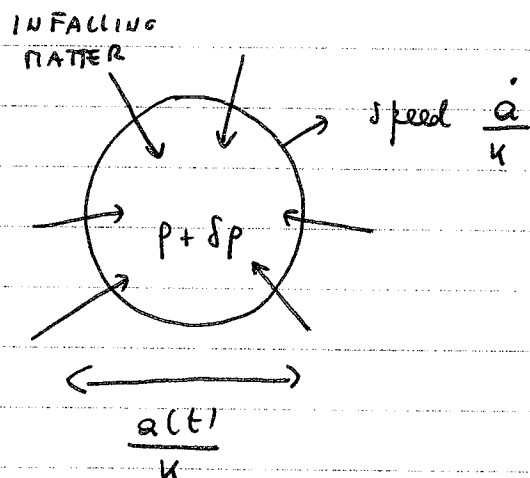 INFALLING
MATTER
speed ȧ/k
ρ + δρ
a(t)/k